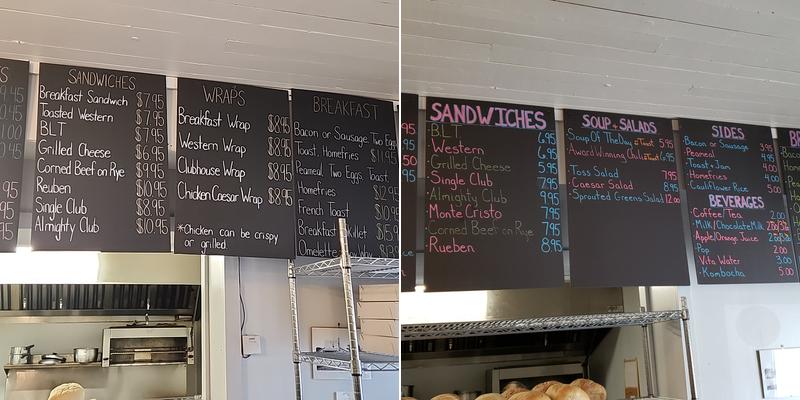 SANDWICHES
Breakfast Sandwich $7.95
Toasted Western $7.95
BLT $7.95
Grilled Cheese $6.95
Corned Beef on Rye $9.95
Reuben $10.95
Single Club $8.95
Almighty Club $10.95
WRAPS
Breakfast Wrap $8.95
Western Wrap $8.95
Clubhouse Wrap $8.95
Chicken Caesar Wrap $8.95
*Chicken can be crispy
or grilled
BREAKFAST
Bacon or Sausage, Two Egg
Toast, Homefries $11.95
Peameal, Two Eggs, Toast,
Homefries $12.95
French Toast
Breakfast Skillet $15.9
Omelette
SANDWICHES
BLT 6.95
Western 6.95
Grilled Cheese 5.95
Single Club 7.95
Almighty Club 9.95
Monte Cristo 7.95
Corned Beef on Rye 7.95
Rueben 8.95
SOUP + SALADS
Soup Of The Day & Toast 5.95
Award Winning Chili & Toast 6.95
Toss Salad 7.95
Caesar Salad 8.95
Sprouted Greens Salad 12.00
SIDES
Bacon or Sausage 3.95
Peameal 4.95
Toast & Jam 4.00
Homefries 4.00
Cauliflower Rice 5.00
BEVERAGES
Coffee/Tea 2.00
Milk/Chocolate Milk
Apple/Orange Juice
Pop 2.00
Vita Water 3.00
Kombocha 5.00